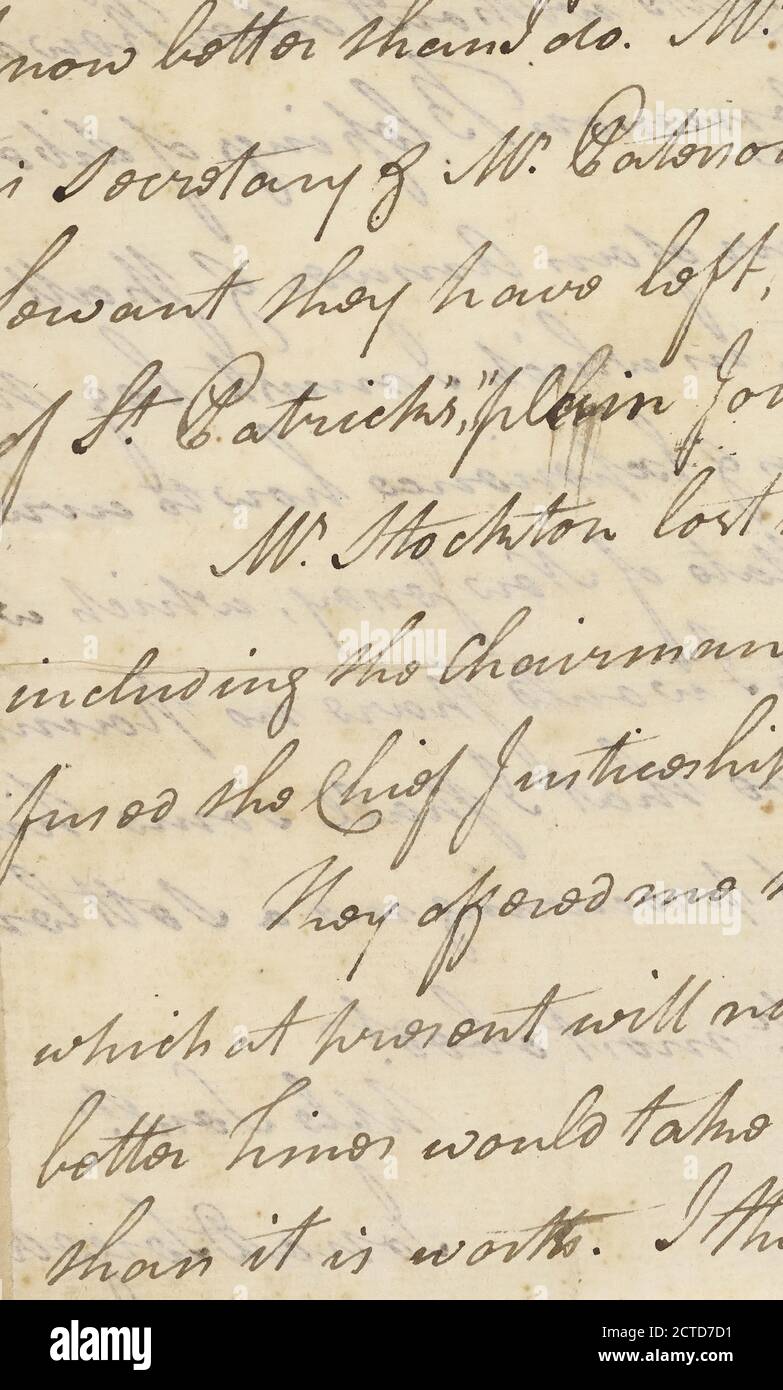 now better than I do. Mr.
is secretary & Mr. Paterson
Sewant they have left,
of St. Patrick's," plain Jon
Mr. Stockton lost
including the Chairman
fused the Chief Justiceship
They offered me
which at present will no
better times would take
than it is worth. I th
alamy
Image ID: 2CTD7D1
www.alamy.com